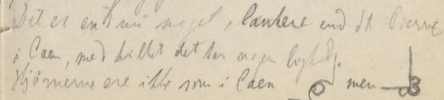 Det er endnu noget lankere end St. Pierre
i Caen, med hvilket det har nogen lighed.
Hjørnerne ere ikke som i Caen men